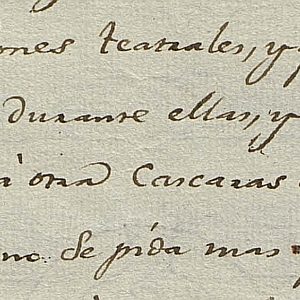 ones teatrales, y
durante ellas, y
à otra Cascaras
no se pida mas